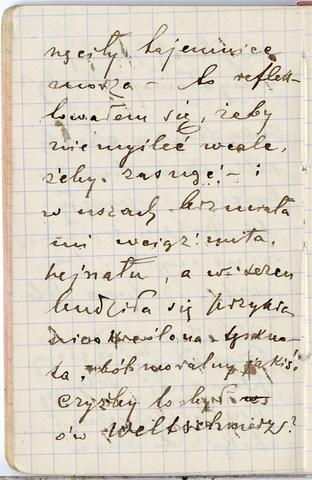 nęciły tajemnice
morza – to reflek-
towałem się, żeby
niemyśleć wcale,
żeby zasnąć – i
w uszach brzmiała
mi wciąż nuta
hejnału, a w sercu
budziła się przykra
nieokreślona tęskno-
ta, ból moralny jakiś.
Czyżby to był
ów Weltschmerz?